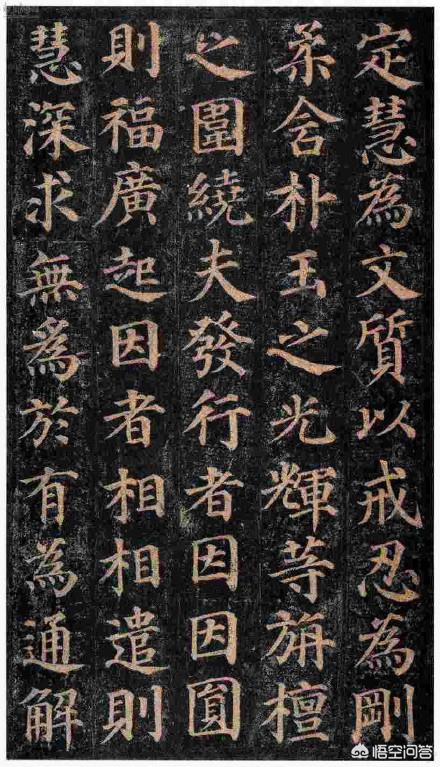 定慧為文質以戒忍為剛
柔含朴玉之光輝等旃檀
之圍繞夫發行者因因圓
則福廣起因者相相遣則
慧深求無為於有為通解
悟空问答